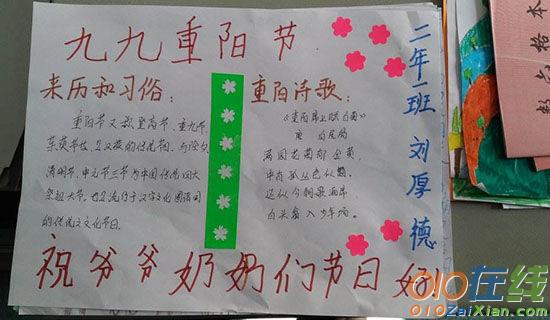 九九重阳节
来历和习俗：
重阳节又称登高节、重九节、
茱萸节,也是汉族的传统节,与除夕
清明节、中元节三节为中国传统四大
祭祖大节。也是流行于汉字文化圈诸国
的传统文化节日。
重阳诗歌：
唐
满园花菊郁金黄,
中有孤丛色似霜.
还似今朝歌酒席
白头翁入少年场.
二年一班 刘厚德
祝爷爷奶奶们节日好
格本
010在线
010ZaiXian.com